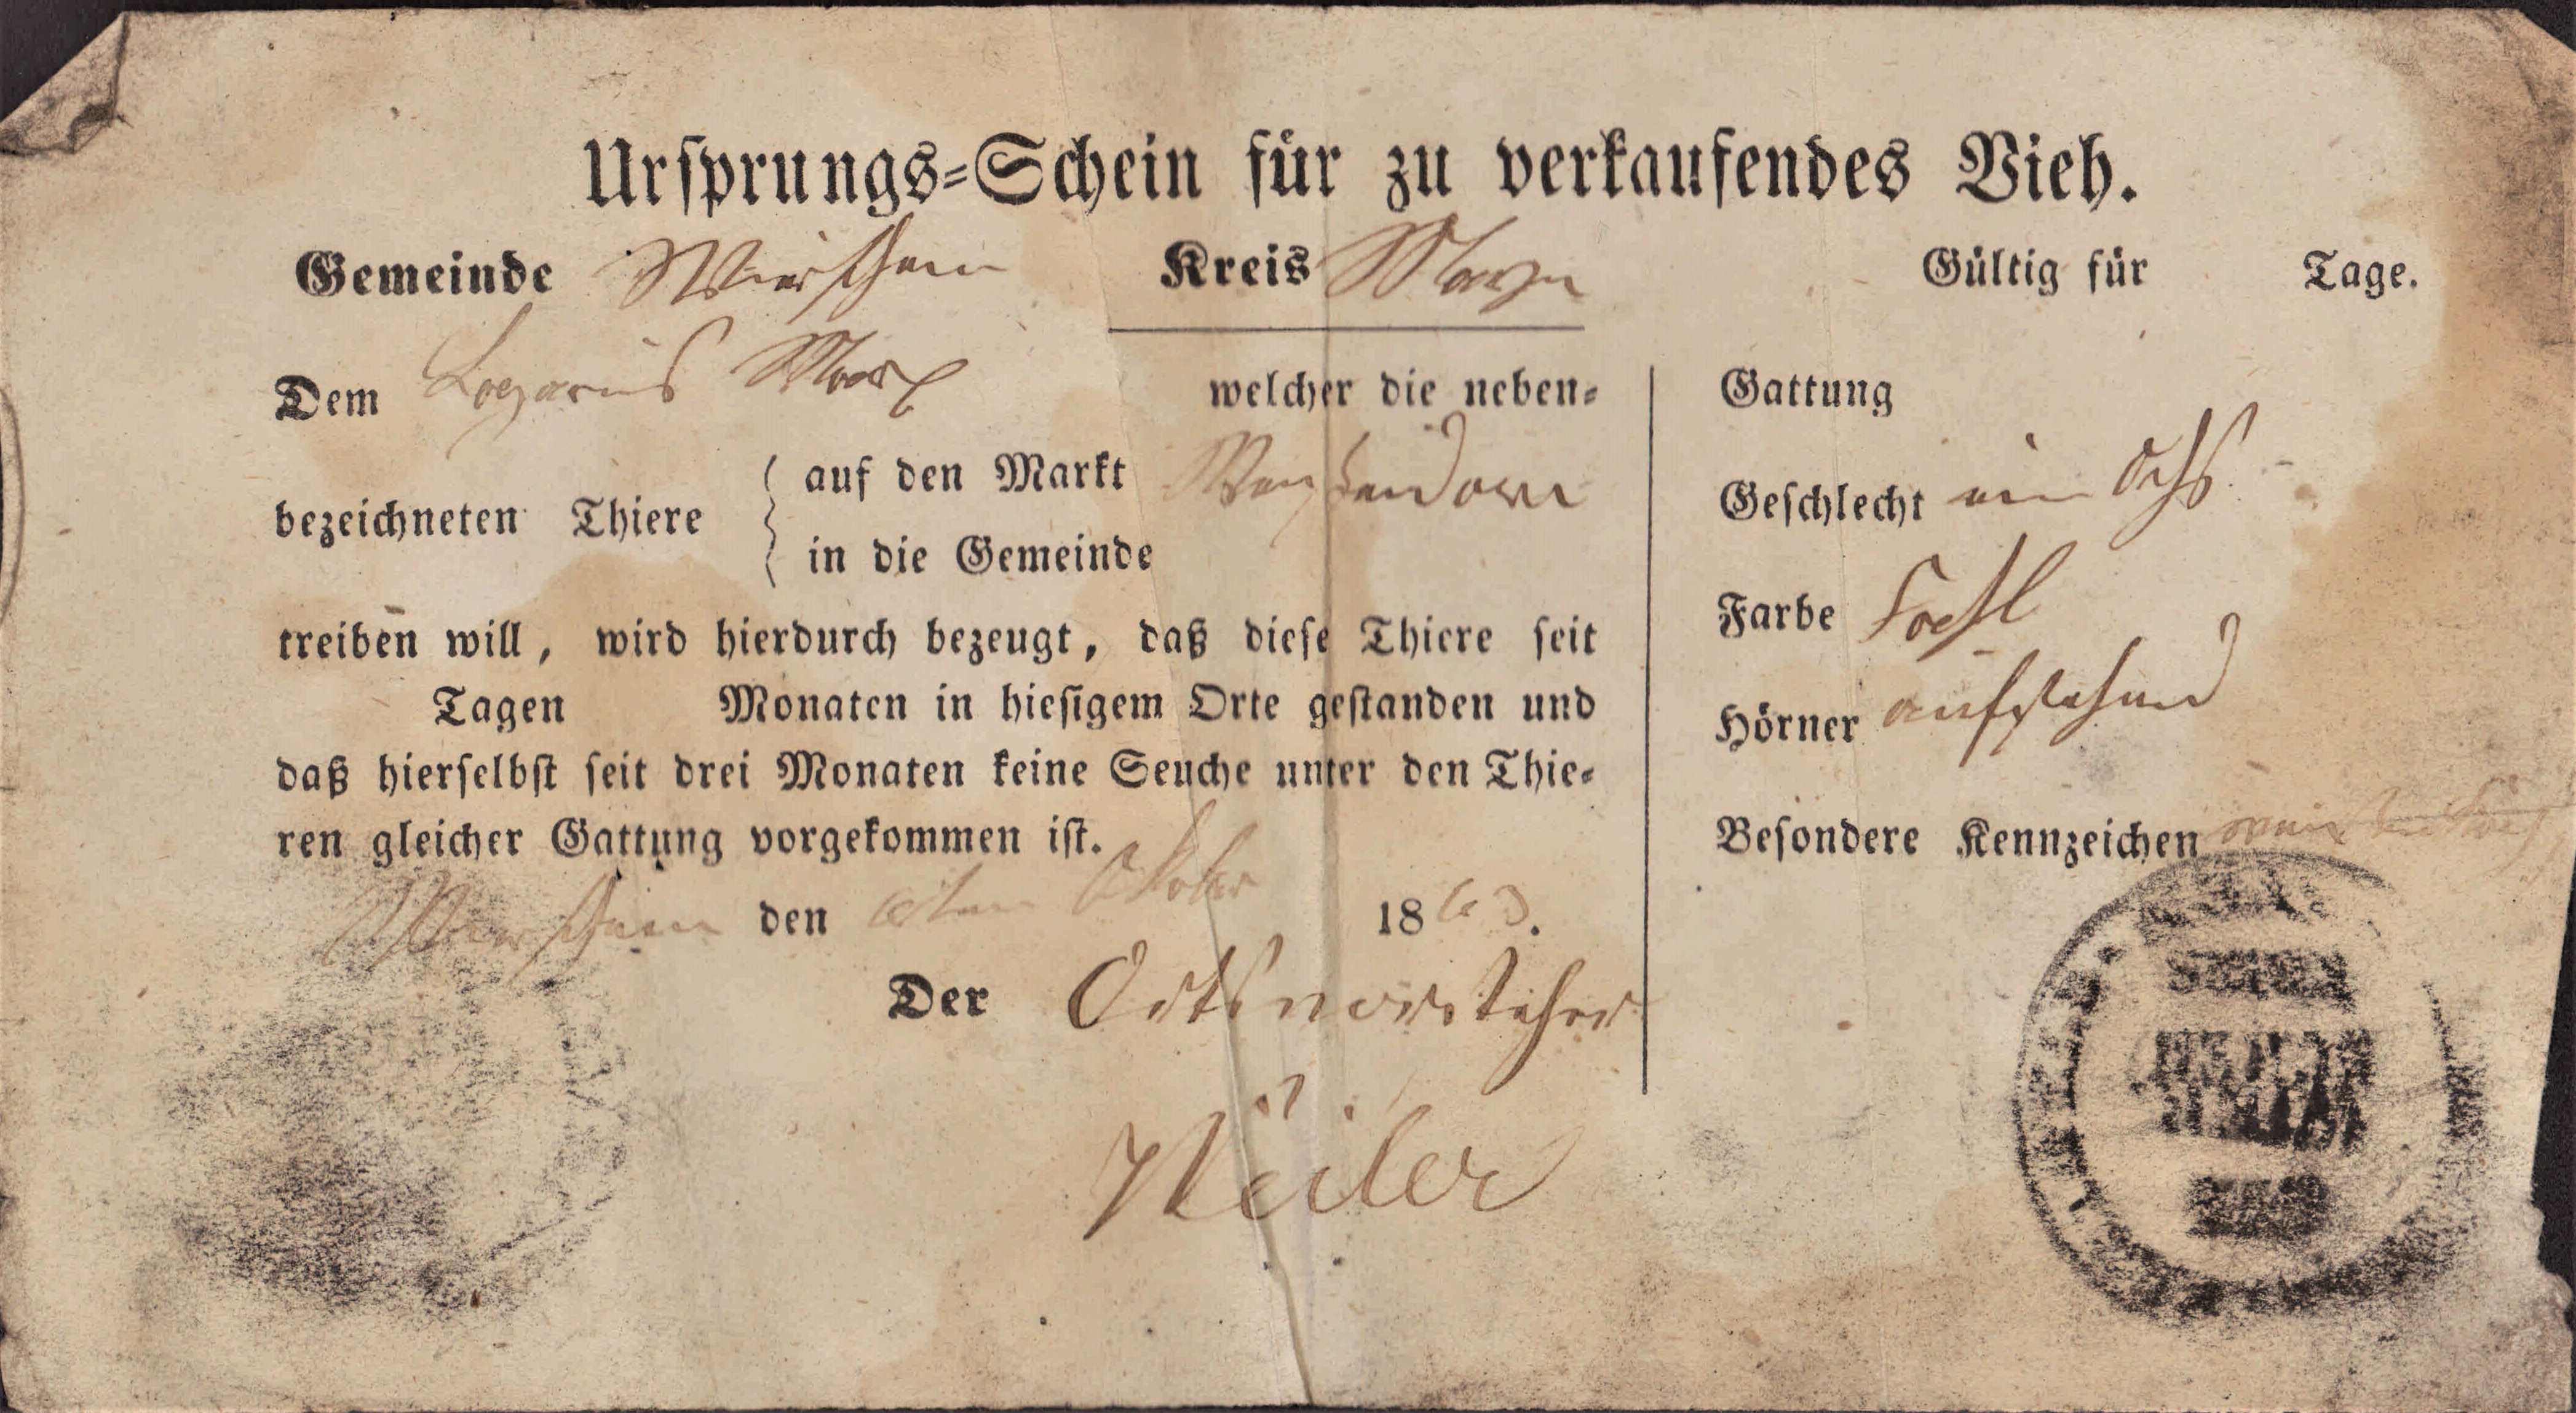 Ursprungs-Schein für zu verkaufendes Vieh.
Gemeinde Wierschem Kreis Mayen Gültig für Tage.
Dem Lazarus Marx welcher die neben-
bezeichneten Thiere { auf den Markt
in die Gemeinde
treiben will, wird hierdurch bezeugt, daß diese Thiere seit
Tagen Monaten in hiesigem Orte gestanden und
daß hierselbst seit drei Monaten keine Seuche unter den Thie-
ren gleicher Gattung vorgekommen ist.
Wierschem den Oktober 1863.
Der Ortsvorsteher
Weiler
Gattung
Geschlecht ein Ochs
Farbe
Hörner aufstehend
Besondere Kennzeichen